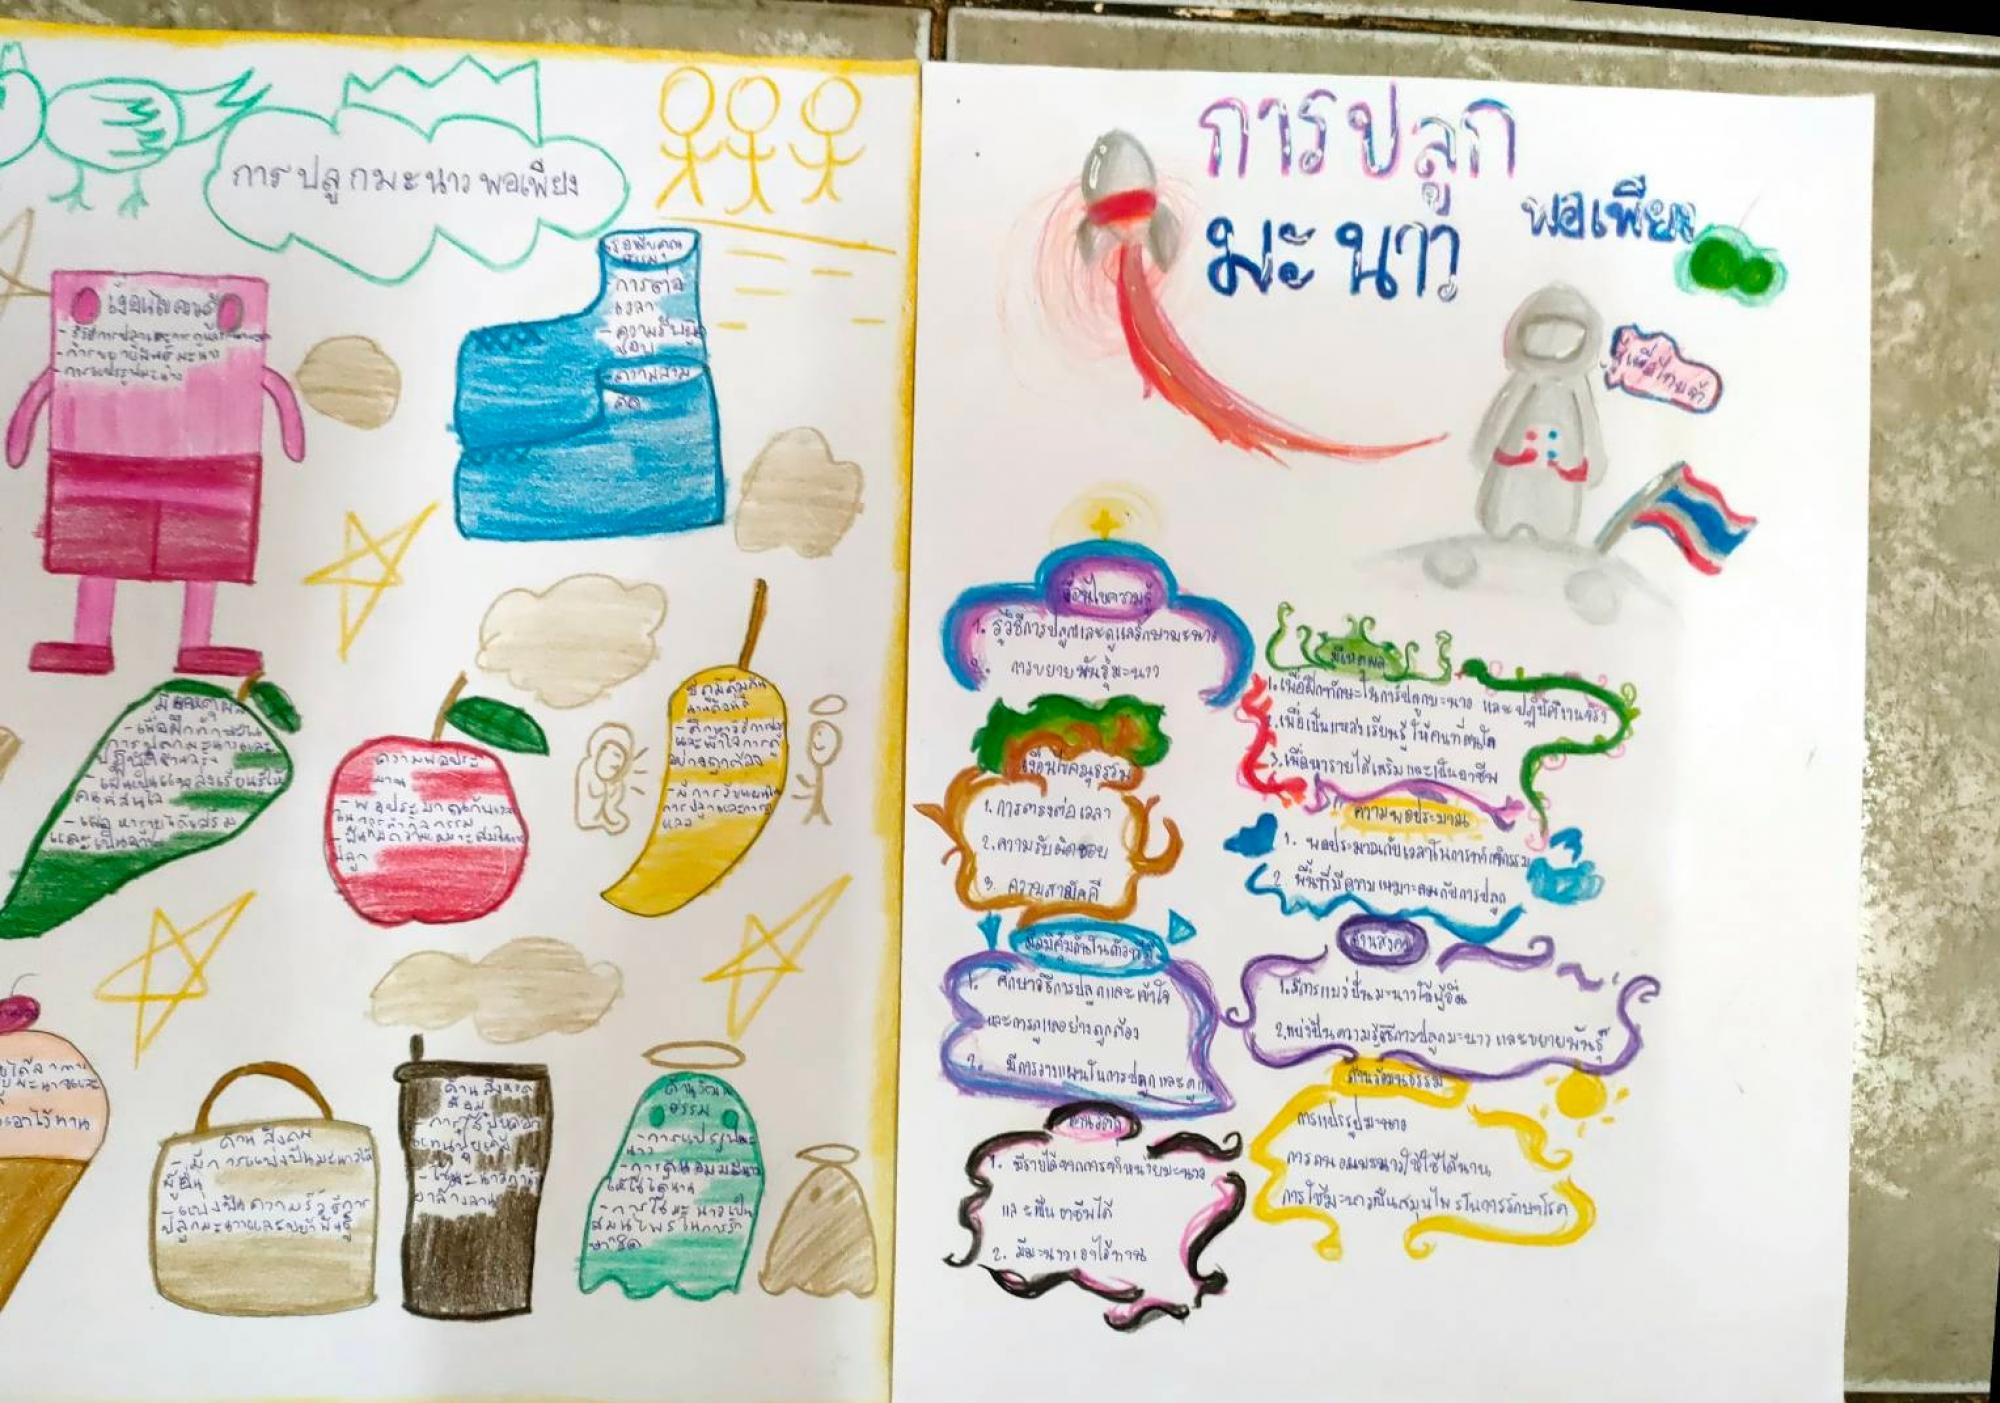 การปลูกมะนาวพอเพียง
เงื่อนไขความรู้
- การขยายพันธ์มะนาว
- การแปรรูปมะนาว
- ความรับผิด
ชอบ
มีเหตุผล
- เพื่อฝึกทักษะใน
การปลูกมะนาวและ
ปฏิบัติงานจริง
- เพื่อเป็นแหล่งเรียนรู้ให้
คนที่สนใจ
- เพื่อหารายได้เสริม
ความพอประ
มาณ
ปลูก
มีภูมิคุ้มกัน
อย่างถูกต้อง
- มีการวางแผนใน
การปลูกและการดู
แล
เอาไว้ทาน
ด้านสังคม
- มีการแบ่งปันมะนาวให้
ผู้อื่น
- แบ่งปันความรู้วิธีการ
ปลูกมะนาวและขยายพันธุ์
ด้านสิ่งแวด
ล้อม
- การใช้ปุ๋ยคอก
แทนปุ๋ยเคมี
ด้านวัฒน
ธรรม
- การแปรรูปมะ
นาว
- การถนอมมะนาว
ให้ใช้ได้นาน
- การใช้มะนาวเป็น
สมุนไพรในการรัก
การปลูก
มะนาว พอเพียง
เงื่อนไขความรู้
1. รู้วิธีการปลูกและดูแลรักษามะนาว
2. การขยายพันธุ์มะนาว
มีเหตุผล
1. เพื่อฝึกทักษะในการปลูกมะนาว และปฏิบัติงานจริง
2. เพื่อเป็นแหล่งเรียนรู้ให้คนที่สนใจ
3. เพื่อหารายได้เสริมและเป็นอาชีพ
เงื่อนไขคุณธรรม
1. การตรงต่อเวลา
2. ความรับผิดชอบ
3. ความสามัคคี
ความพอประมาณ
1. พอประมาณกับเวลาในการทำกิจกรรม
2. พื้นที่มีความเหมาะสมกับการปลูก
มีภูมิคุ้มกันในตัวที่ดี
1. ศึกษาวิธีการปลูกและเข้าใจ
และการดูแลอย่างถูกต้อง
2. มีการวางแผนในการปลูกและดูแล
ด้านสังคม
1. มีการแบ่งปันมะนาวให้ผู้อื่น
2. แบ่งปันความรู้วิธีการปลูกมะนาว และขยายพันธุ์
ด้านวัตถุ
1. มีรายได้จากการจำหน่ายมะนาว
และเป็นอาชีพได้
2. มีมะนาวเอาไว้ทาน
ด้านวัฒนธรรม
การแปรรูปมะนาว
การถนอมมะนาวให้ใช้ได้นาน
การใช้มะนาวเป็นสมุนไพรในการรักษาโรค